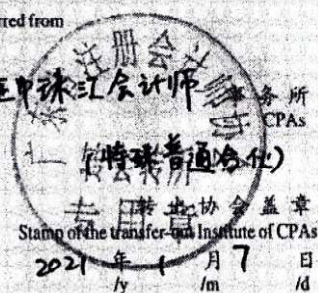 rred from
正中珠江会计师 事务所
CPAs
(特殊普通合伙)
转出协会盖章
Stamp of the transfer-out Institute of CPAs
2021 年 1 月 7 日
/y /m /d